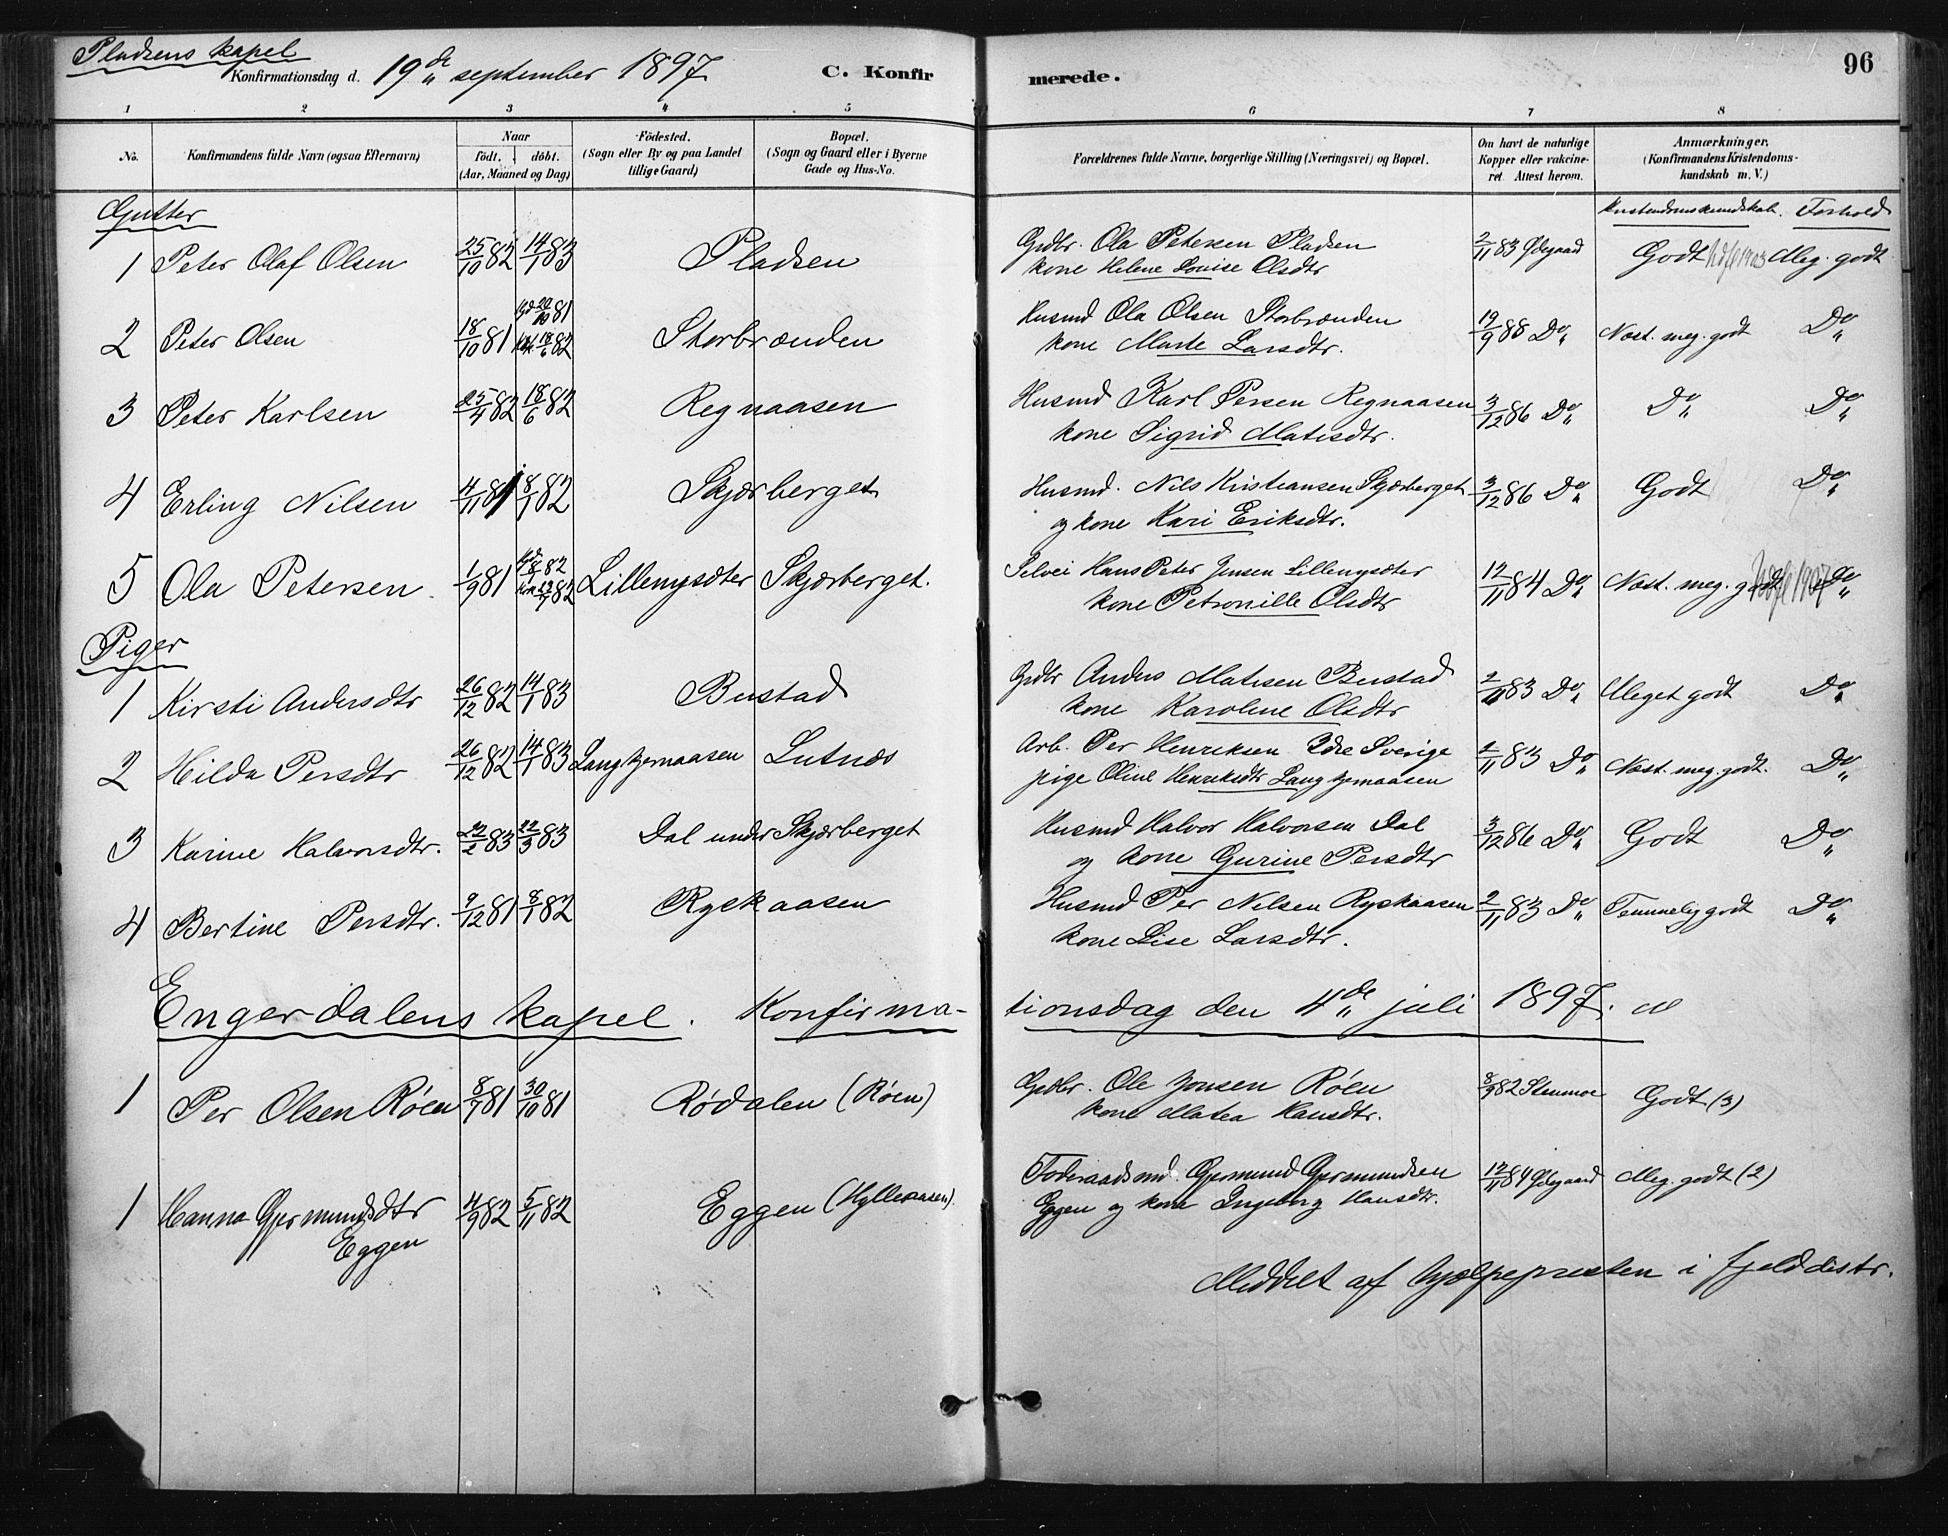 Pladsens kapel
Konfirmationsdag d. 19de september 1897. C. Konfirmerede. 96
1 2 3 4 5 6 7 8
No. Konfirmandens fulde Navn (ogsaa Efternavn) Naar født. døbt. (Aar, Maaned og Dag) Födested. (Sogn eller By og paa Landet tillige Gaard) Bopæl. (Sogn og Gaard eller i Byerne Gade og Hus-No. Forældrenes fulde Navne, borgerlige Stilling (Næringsvei) og Bopæl. Om havt de naturlige Kopper eller vakcineret. Attest herom. Anmærkninger. (Konfirmandens Kristendomskundskab m. V.)
Gutter Kristendomskundskab. Forhold
1 Peter Olaf Olsen 25/10 82 14/1 83 Pladsen Grdbr. Ola Petersen Pladsen 2/11 83 Ødegaard Godt Meg. godt
kone Helene Louise Olsdtr
2 Peter Olsen 18/10 81 18/6 82 Storbrænden Husmd Ola Olsen Storbrænden 19/9 88 Do Næst. meg. godt Do
kone Marte Larsdtr.
3 Peter Karlsen 25/4 82 18/6 82 Regnaasen Husmd Karl Persen Regnaasen 3/12 86 Do Do Do
kone Sigrid Matisdtr.
4 Erling Nilsen 4/11 81 8/1 82 Skjærberget Husmd. Nils Kristiansen Skjærberget 3/12 86 Do Godt Do
og kone Kari Eriksdtr.
5 Ola Petersen. 1/9 81 Lillenysæter Skjærberget. Selvei Hans Peter Jensen Lillenysæter 12/11 84 Do Næst. meg. godt Do
kone Petronille Olsdtr
Piger
1 Kirsti Andersdtr 26/12 82 14/1 83 Bustad Grdbr Anders Matisen Bustad 2/11 83 Do Meget godt Do
kone Karoline Olsdtr
2 Hilda Persdtr 26/12 82 14/1 83 Langtjernaasen Lutnæs Arb. Per Henriksen Idre Sverige 2/11 83 Do Næst. meg. godt. Do
pige Oline Henriksdtr Langtjernaasen
3 Karine Halvorsdtr. 22/2 83 22/3 83 Dal under Skjærberget Husmd Halvor Halvorsen Dal 3/12 86 Do Godt Do
og kone Gurine Persdtr
4 Bertine Persdtr. 9/12 81 8/1 82 Ryskaasen Husmd Per Nilsen Ryskaasen 2/11 83 Do Temmelig godt Do
kone Lise Larsdtr.
Engerdalens kapel. Konfirmationsdag den 4de juli 1897.
1 Per Olsen Røen 8/7 81 30/10 81 Rødalen (Røen) Grdbr. Ole Jonsen Røen 8/9 82 Stenmoe Godt (3)
kone Matea Hansdtr.
1 Hanna Gjermundsdtr 4/9 82 5/11 82 Eggen (Hylleraasen). Foderaadsmd. Gjermund Gjermundsen 12/11 84 Ødegaard Meg. godt (2)
Eggen Eggen og kone Ingeborg Hansdtr.
Meddelt af hjælpepresten i fjelddistr.